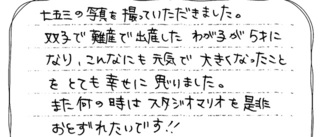 七五三の写真を撮っていただきました。
双子で難産で出産した わが子が 5才に
なり、こんなにも 元気で 大きくなったこと
を とても 幸せに 思いました。
また何の時は スタジオマリオを是非
おとずれたいです!!